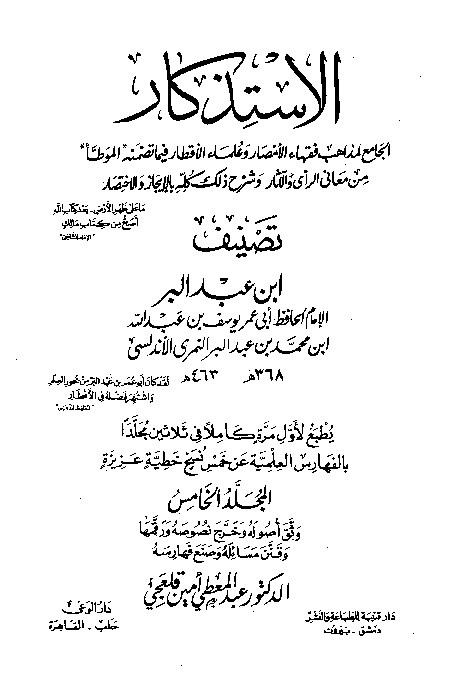 الاستذكار
الجامع لمذاهب فقهاء الأمصار وعلماء الأقطار فيما تضمنه "الموطأ"
من معاني الرأي والآثار وشرح ذلك كله بالإيجاز والاختصار
ما على ظهر الأرض - بعد كتاب الله
أصح من كتاب مالك
"الإمام الشافعي"
تصنيف
ابن عبد البر
الإمام الحافظ أبي عمر يوسف بن عبد الله
ابن محمد بن عبد البر النمري الأندلسي
٣٦٨هـ ٤٦٣هـ
لقد كان أبو عمر بن عبد البر من بحور العلم
واشتهر فضله في الأقطار
يطبع لأول مرة كاملا في ثلاثين مجلدا
بالفهارس العلمية عن خمس نسخ خطية عزيزة
المجلد الخامس
وثق أصوله وخرج نصوصه ورقمها
وقنن مسائله وصنع فهارسه
الدكتور عبد المعطي أمين قلعجي
دار قتيبة للطباعة والنشر
دمشق - بيروت
دار الوعي
حلب - القاهرة